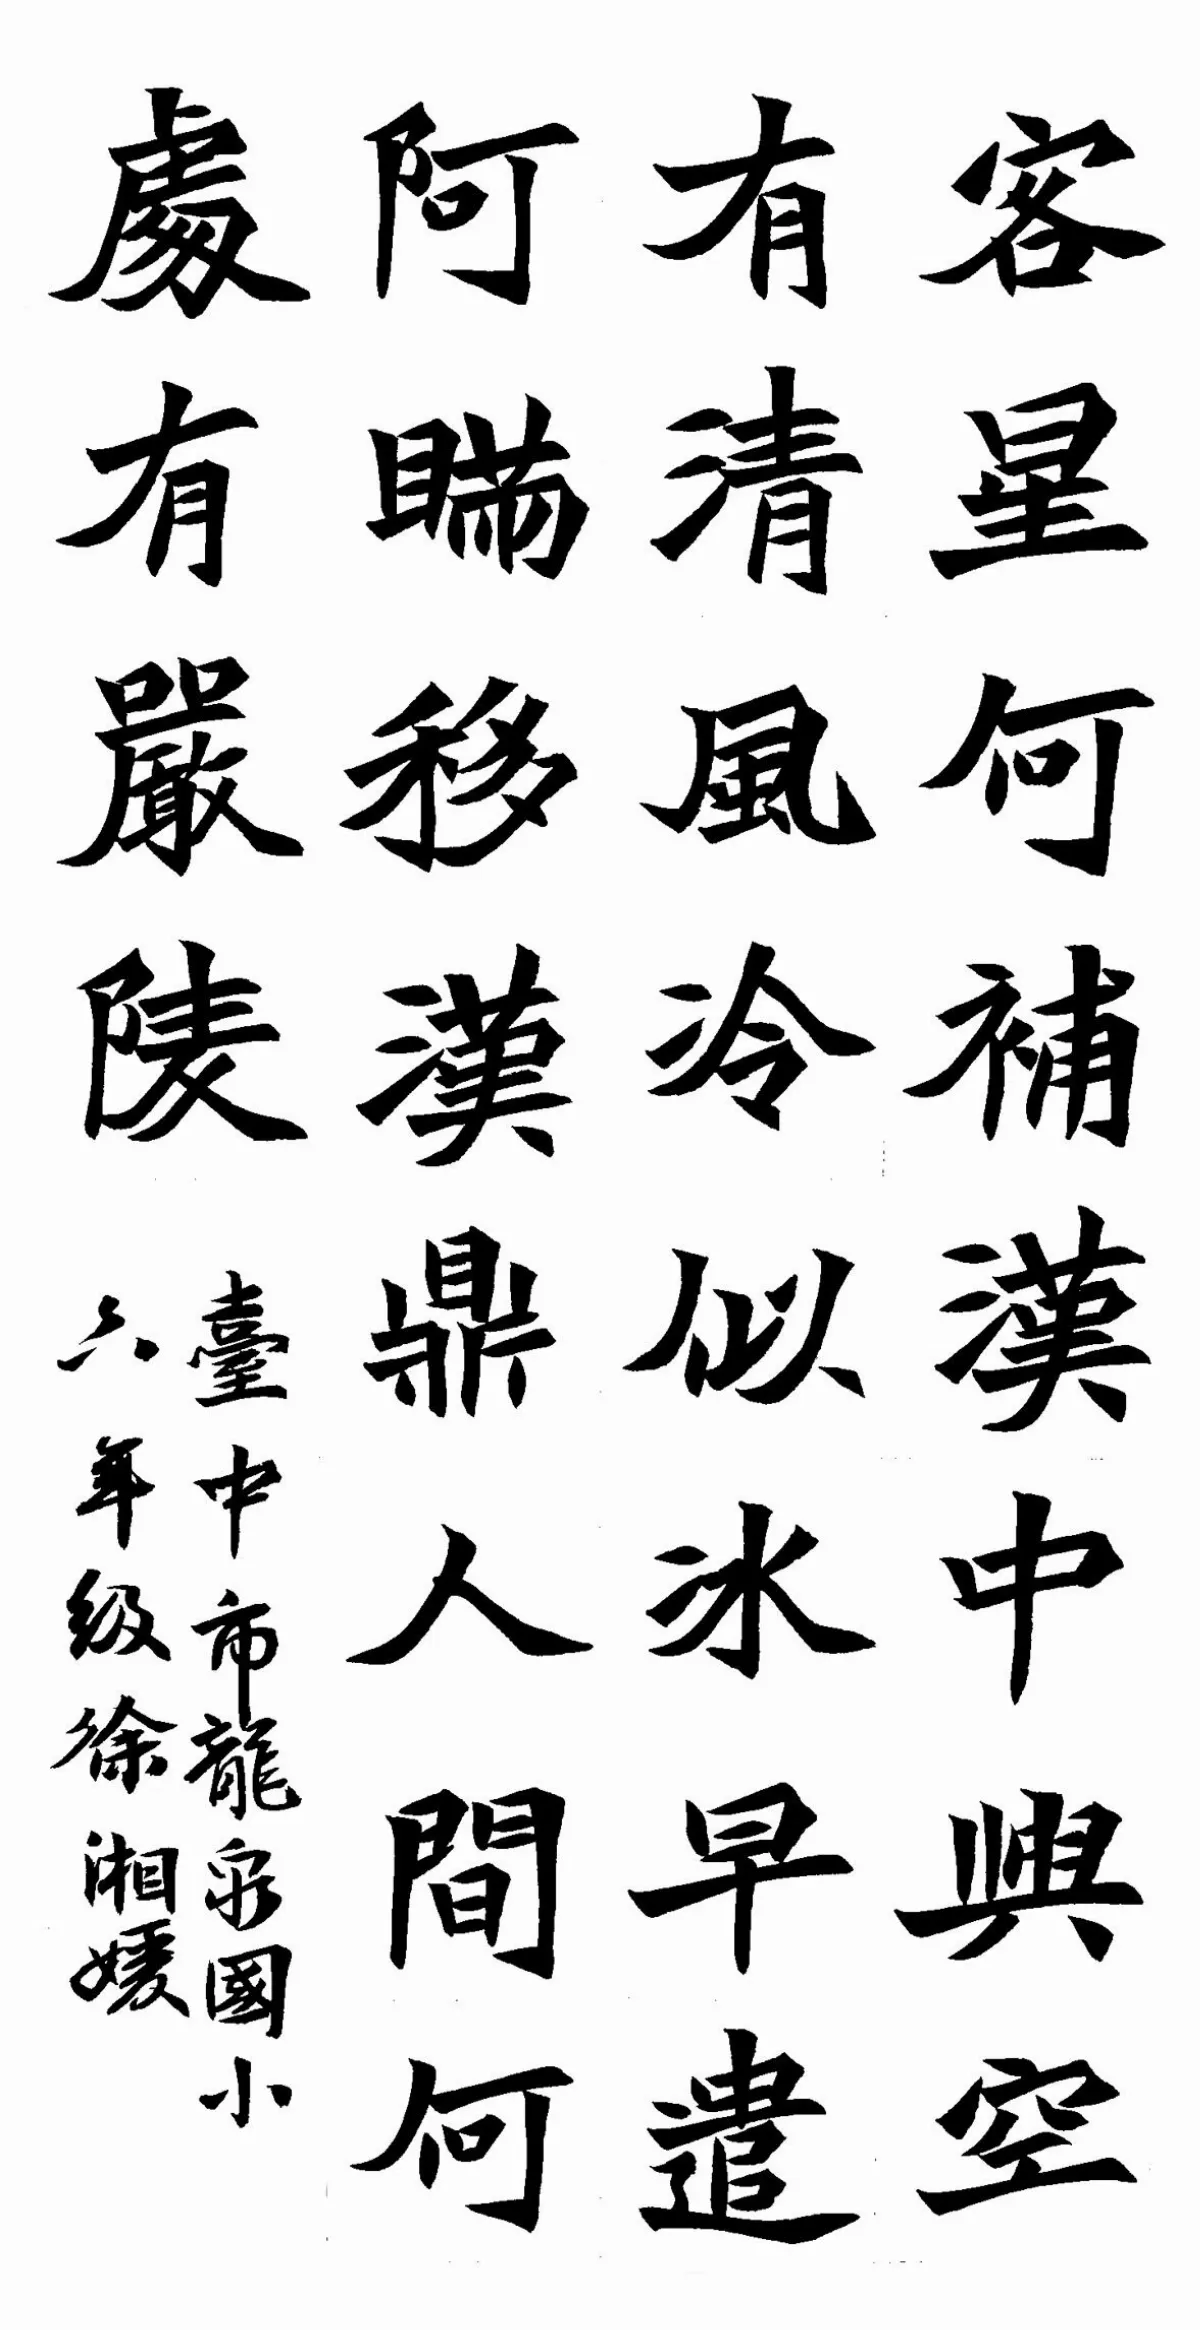 客星何補漢中興空
有清風泠似冰早遣
阿瞞移漢鼎人間何
處有嚴陵
臺中市龍泉國小
六年級徐湘媛